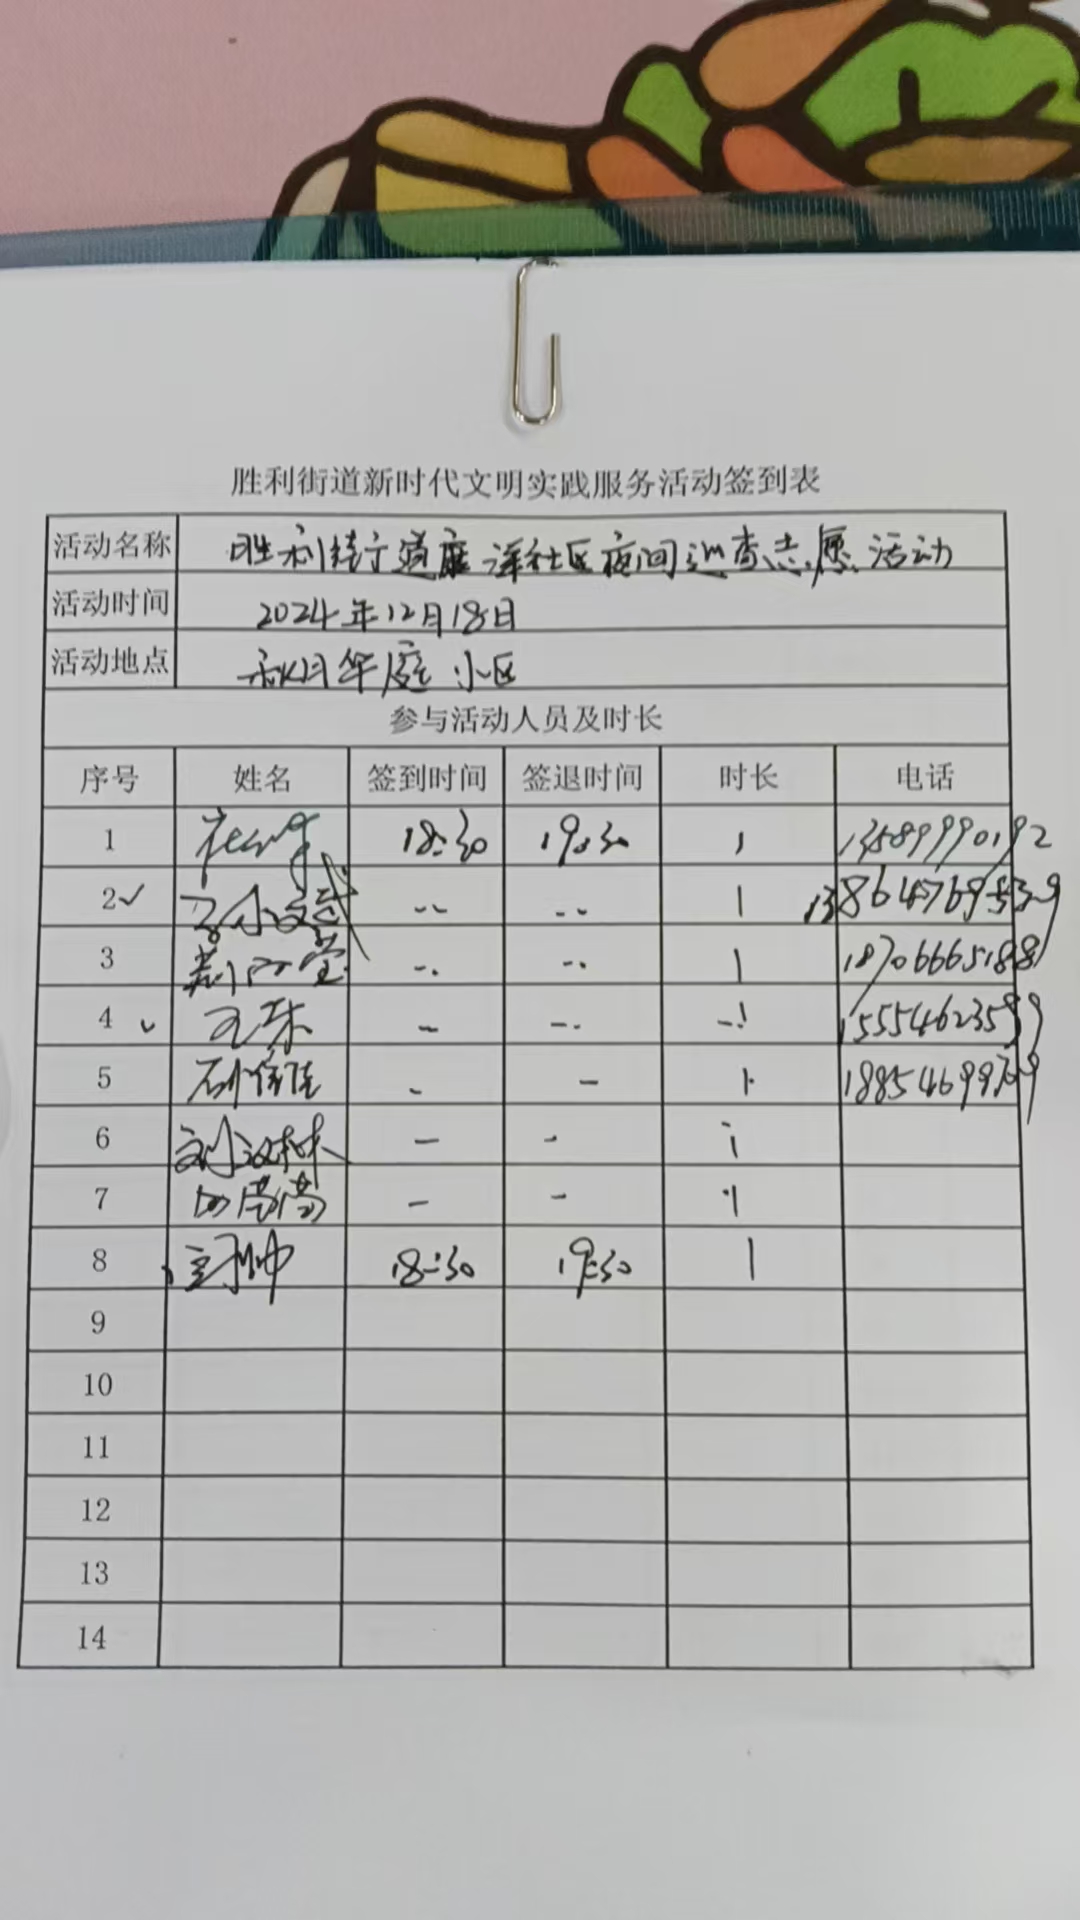 胜利街道新时代文明实践服务活动签到表
活动名称 胜利街道康洋社区夜间巡查志愿活动
活动时间 2024年12月18日
活动地点 秋月华庭小区
参与活动人员及时长
序号 姓名 签到时间 签退时间 时长 电话
1 18:30 19:30 1 13589990192
2 ✓ 1
3 1 18706665188
4 ✓ 王东 - -- 1 15554623599
5 - - 1
6 刘汉林 - - 1
7 - - 1
8 18:30 19:30 1
9
10
11
12
13
14